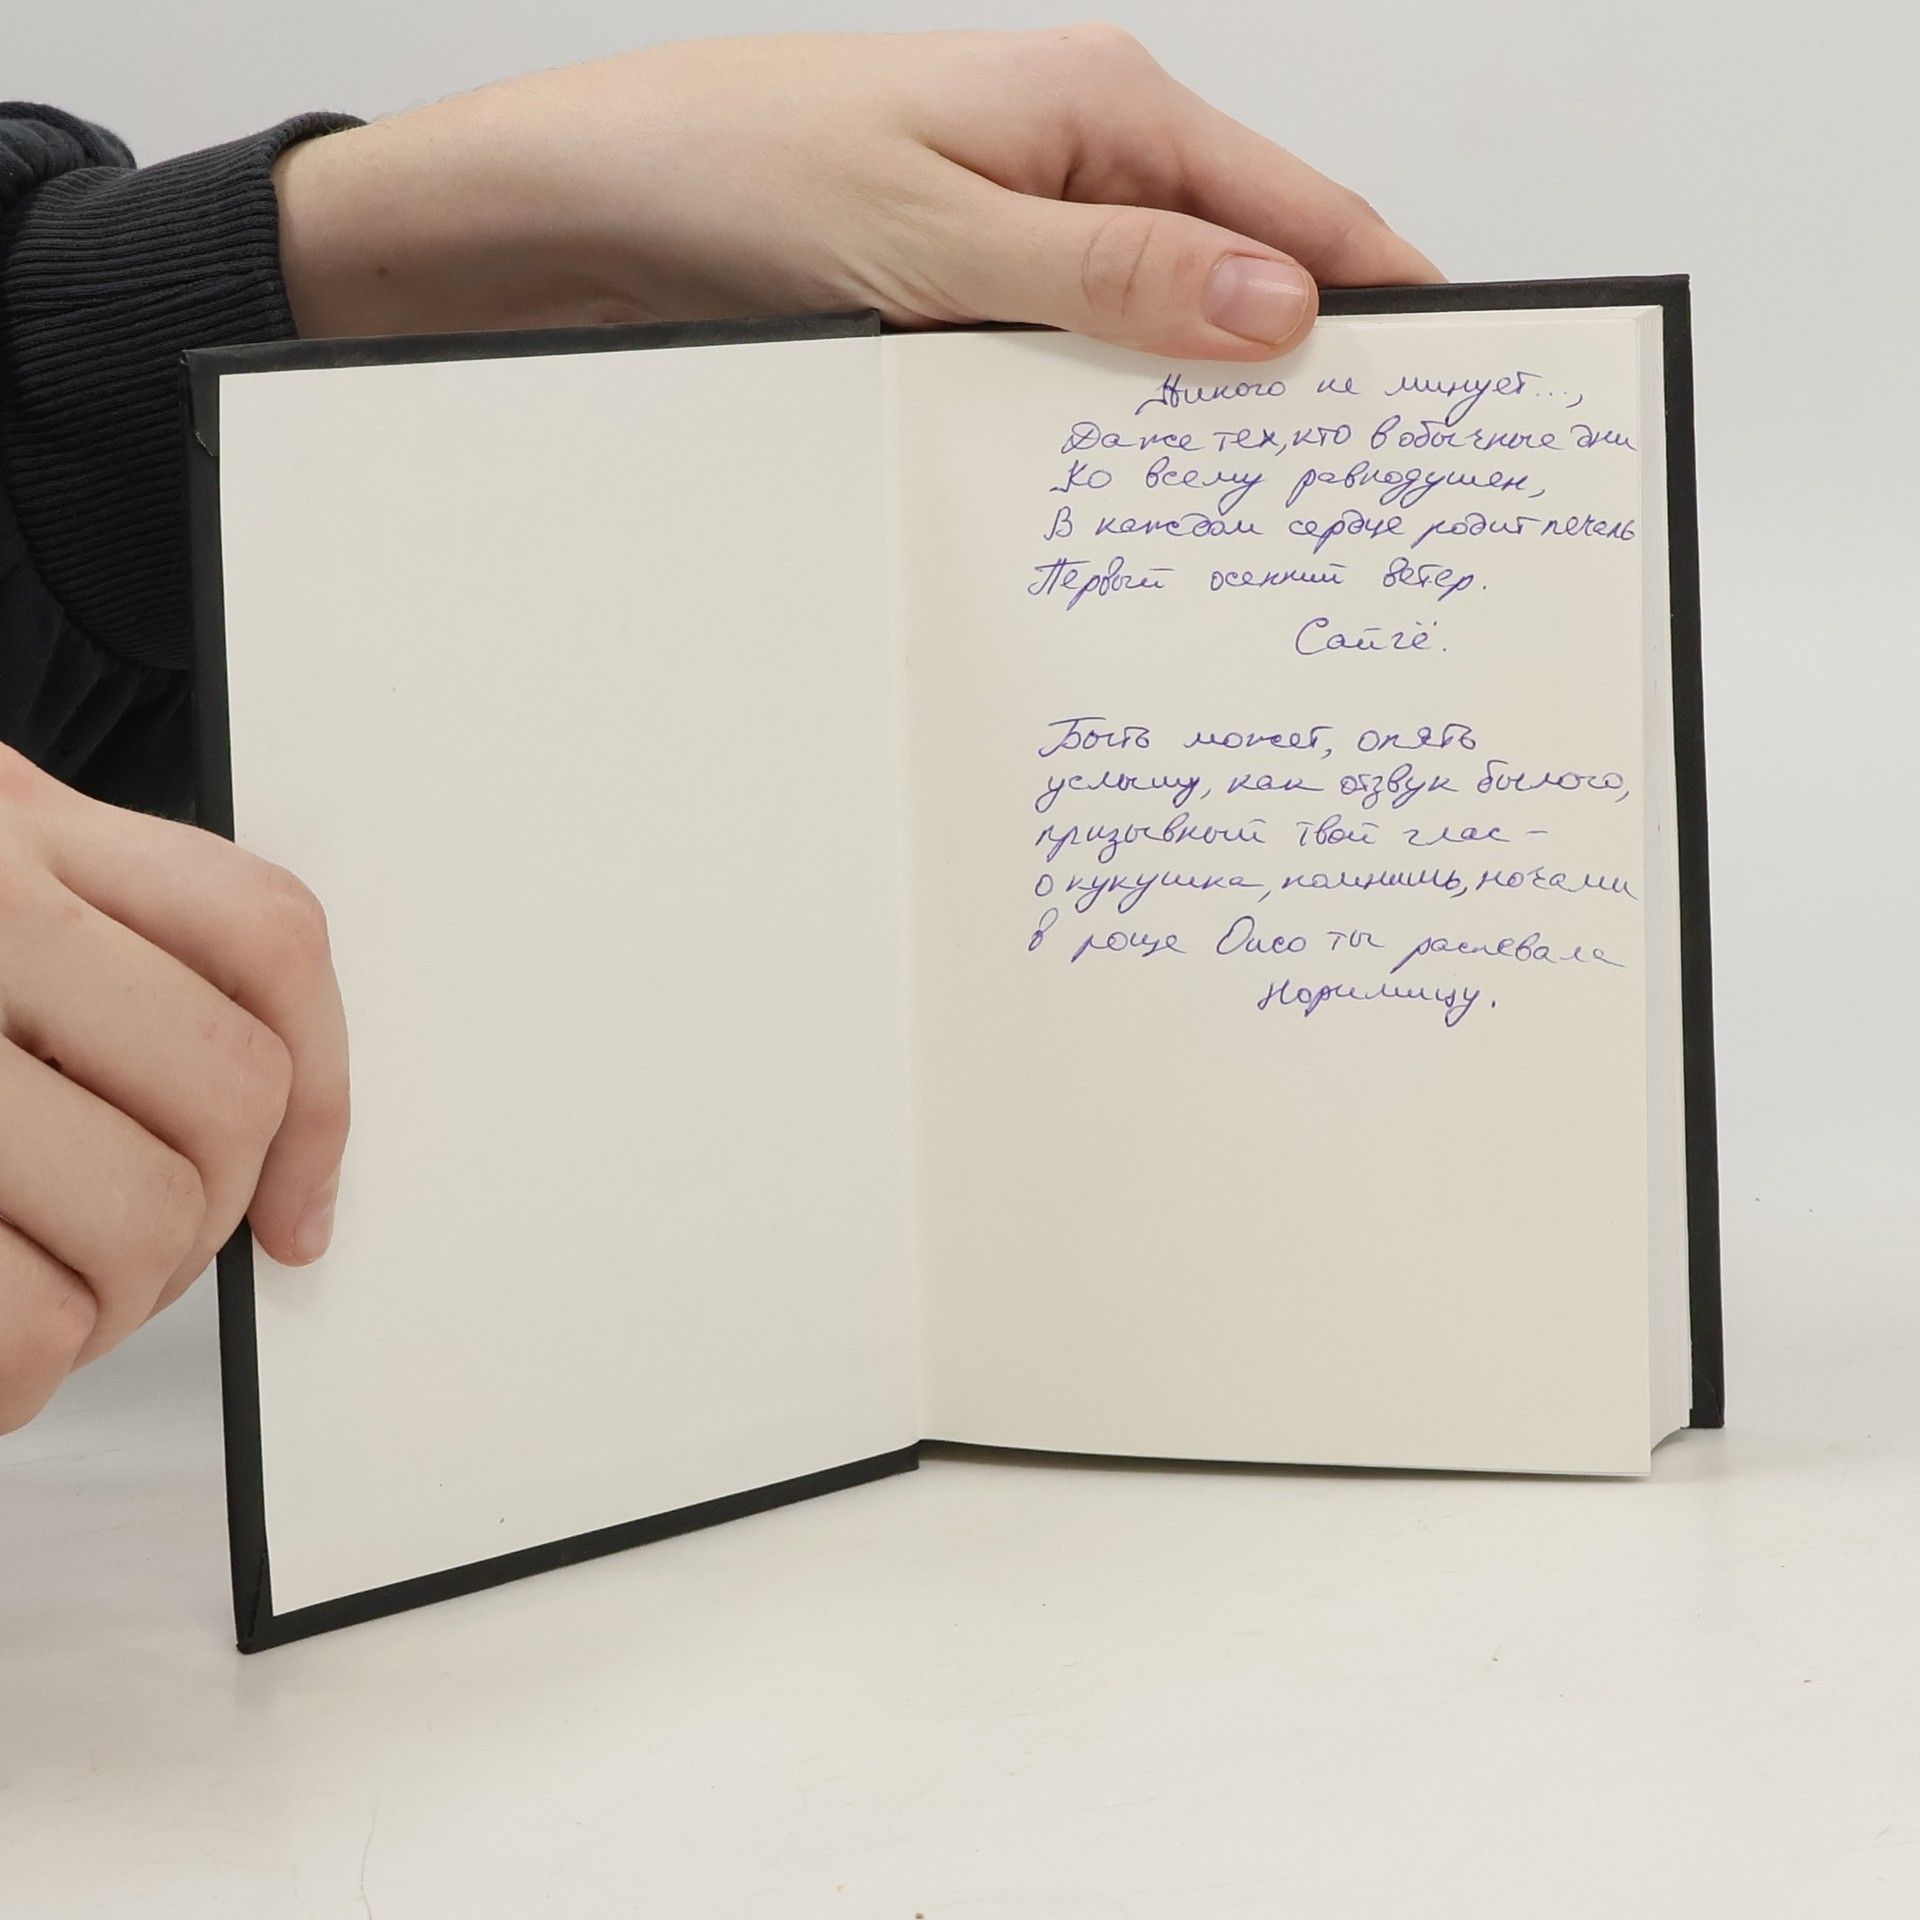 Никого не минует...,
Даже тех, кто в обычные дни
Ко всему равнодушен,
В каждом сердце родит печаль
Первый осенний ветер.
Сайгё.
Быть может, опять
услышу, как отзвук былого,
призывный твой глас –
о кукушка, помнишь, ночами
в роще Оисо ты распевала
Норимицу.